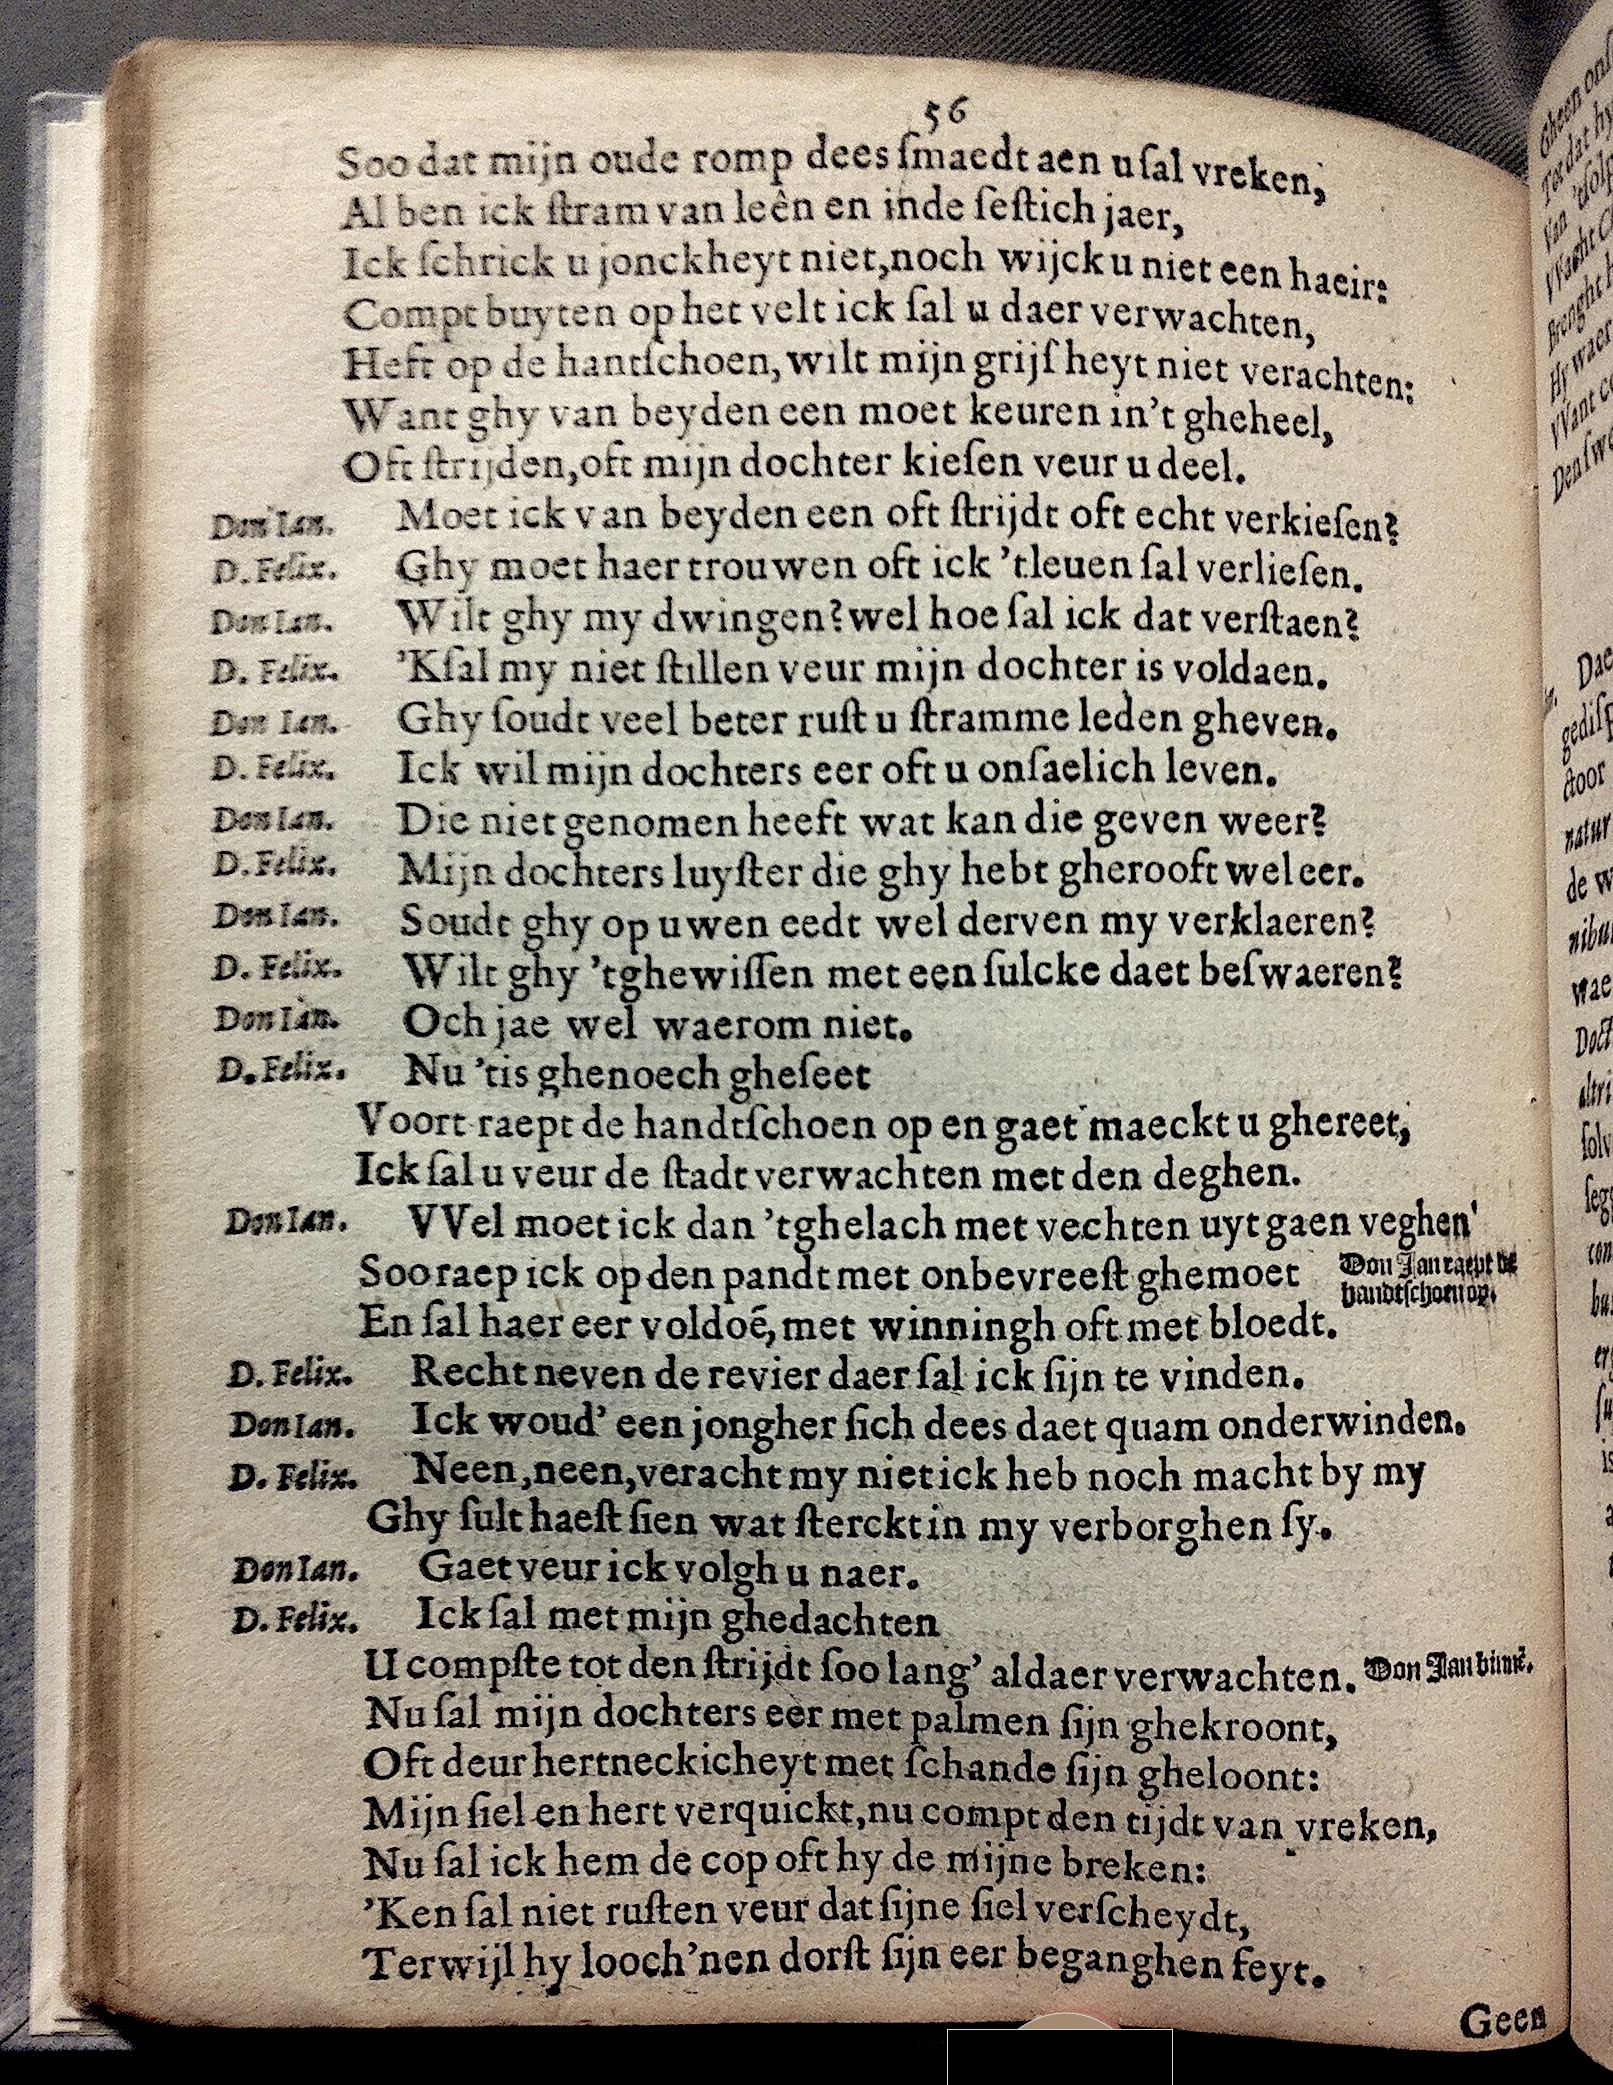 56
Soo dat mijn oude romp dees ſmaedt aen u ſal vreken,
Al ben ick ſtram van leên en inde ſeſtich jaer,
Ick ſchrick u jonckheyt niet, noch wijck u niet een haeir:
Compt buyten op het velt ick ſal u daer verwachten,
Heft op de hantſchoen, wilt mijn grijſheyt niet verachten:
Want ghy van beyden een moet keuren in't gheheel,
Oft ſtrijden, oft mijn dochter kieſen veur u deel.
Don Ian. Moet ick van beyden een oft ſtrijdt oft echt verkieſen?
D. Felix. Ghy moet haer trouwen oft ick 'tleuen ſal verlieſen.
Don Ian. Wilt ghy my dwingen? wel hoe ſal ick dat verſtaen?
D. Felix. 'Kſal my niet ſtillen veur mijn dochter is voldaen.
Don Ian. Ghy ſoudt veel beter ruſt u ſtramme leden gheven.
D. Felix. Ick wil mijn dochters eer oft u onſaelich leven.
Don Ian. Die niet genomen heeft wat kan die geven weer?
D. Felix. Mijn dochters luyſter die ghy hebt gherooft wel eer.
Don Ian. Soudt ghy op uwen eedt wel derven my verklaeren?
D. Felix. Wilt ghy 'tghewiſſen met een ſulcke daet beſwaeren?
Don Ian. Och jae wel waerom niet.
D. Felix. Nu 'tis ghenoech gheſeet
Voort raept de handtſchoen op en gaet maeckt u ghereet,
Ick ſal u veur de ſtadt verwachten met den deghen.
Don Ian. VVel moet ick dan 'tghelach met vechten uyt gaen veghen'
Soo raep ick op den pandt met onbevreeſt ghemoet Don Jan raept de
handtſchoen op.
En ſal haer eer voldoē, met winningh oft met bloedt.
D. Felix. Recht neven de revier daer ſal ick ſijn te vinden.
Don Ian. Ick woud' een jongher ſich dees daet quam onderwinden.
D. Felix. Neen, neen, veracht my niet ick heb noch macht by my
Ghy ſult haeſt ſien wat ſterckt in my verborghen ſy.
Don Ian. Gaet veur ick volgh u naer.
D. Felix. Ick ſal met mijn ghedachten
U compſte tot den ſtrijdt ſoo lang' aldaer verwachten. Don Jan binnē.
Nu ſal mijn dochters eer met palmen ſijn ghekroont,
Oft deur hertneckicheyt met ſchande ſijn gheloont:
Mijn ſiel en hert verquickt, nu compt den tijdt van vreken,
Nu ſal ick hem de cop oft hy de mijne breken:
'Ken ſal niet ruſten veur dat ſijne ſiel verſcheydt,
Terwijl hy looch'nen dorſt ſijn eer beganghen feyt.
Geen